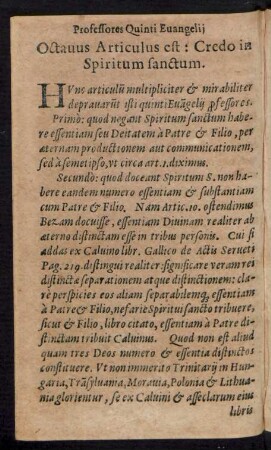 Professores Quinti Euangelij
Octauus Articulus est: Credo in
Spiritum sanctum.
HVnc articulũ multipliciter & mirabiliter
deprauarũt isti quinti Euãgelij pfessores.
Primò: quod negant Spiritum sanctum habe-
re essentiam seu Deitatem à Patre & Filio, per
æternam productionem aut communicationem,
sed à semetipso, vt circa art. 1. diximus.
Secundò: quod doceant Spiritum S. non ha-
bere eandem numero essentiam & substantiam
cum Patre & Filio. Nam Artic. 10. ostendimus
Bezam docuisse, essentiam Diuinam realiter ab
æterno distinctam esse in tribus personis. Cui si
addas ex Caluino libr. Gallico de Actis Serueti
Pag. 219. distingui realiter: significare veram rei
distinctæ separationem atque distinctionem: cla-
rè perspicies eos aliam separabilemq; essentiam
à Patre & Filio, nefariè Spiritui sancto tribuere,
sicut & Filio, libro citato, essentiam à Patre di-
stinctam tribuit Caluinus. Quod non est aliud
quam tres Deos numero & essentia distinctos
constituere. Vt non immeritò Trinitarij in Hun-
garia, Trãsyluania, Morauia, Polonia & Lithua-
nia glorientur, se ex Caluini & asseclarum eius
libris